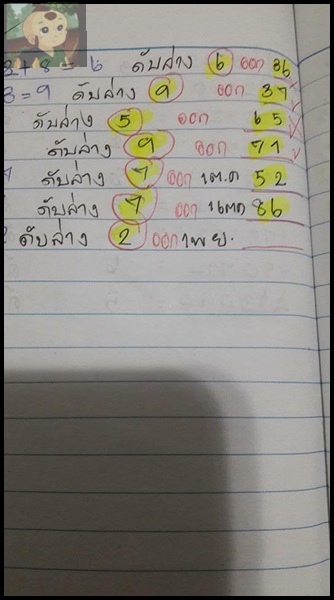 3+8 = 6 ดับล่าง 6 ออก 86
8 = 9 ดับล่าง 9 ออก 37
ดับล่าง 5 ออก 65
ดับล่าง 9 ออก 71
ดับล่าง 7 ออก เต.ค 52
ดับล่าง 7 ออก 86
ดับล่าง 2 ออก พย.